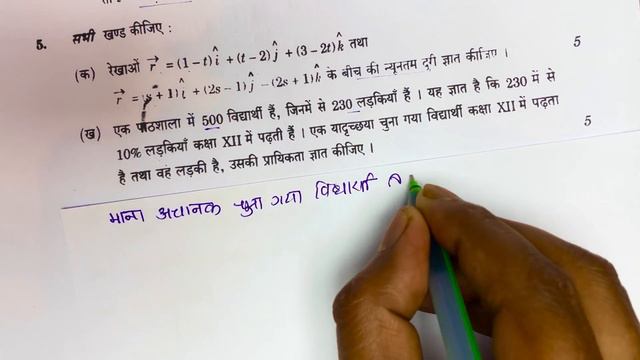 5. सभी खण्ड कीजिए :
(क) रेखाओं r⃗ = (1 – t) î + (t – 2) ĵ + (3 – 2t) k̂ तथा 5
r⃗ = (s + 1) î + (2s – 1) ĵ – (2s + 1) k̂ के बीच की न्यूनतम दूरी ज्ञात कीजिए ।
(ख) एक पाठशाला में 500 विद्यार्थी हैं, जिनमें से 230 लड़कियाँ हैं । यह ज्ञात है कि 230 में से
10% लड़कियाँ कक्षा XII में पढ़ती हैं । एक यादृच्छया चुना गया विद्यार्थी कक्षा XII में पढ़ता
है तथा वह लड़की है, उसकी प्रायिकता ज्ञात कीजिए । 5
माना अचानक चुना गया विद्यार्थी